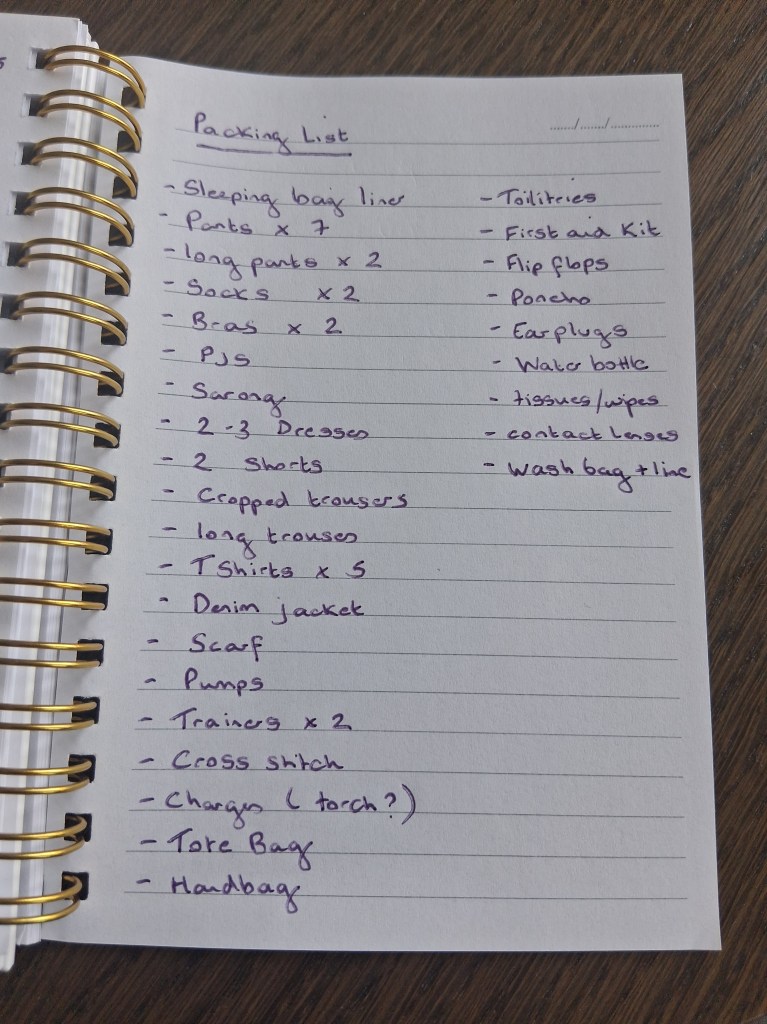 Packing List
...../...../............
- Sleeping bag liner
- Pants x 7
- long pants x 2
- Socks x 2
- Bras x 2
- PJs
- Sarong
- 2-3 Dresses
- 2 Shorts
- Cropped trousers
- long trousers
- T Shirts x 5
- Denim jacket
- Scarf
- Pumps
- Trainers x 2
- Cross stitch
- Charger (torch?)
- Tote Bag
- Handbag
- Toilitries
- First aid Kit
- Flip flops
- Poncho
- Earplugs
- Water bottle
- tissues/wipes
- contact lenses
- Wash bag + line